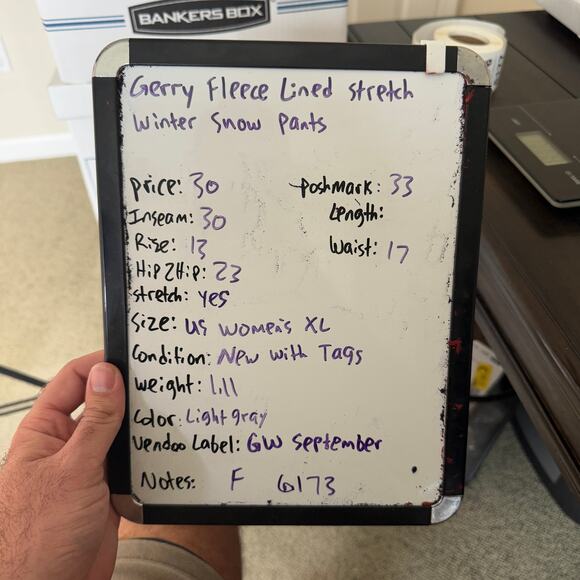 BANKERS BOX
Gerry Fleece Lined stretch
Winter Snow Pants
price: 30 poshmark: 33
Inseam: 30 Length:
Rise: 13 Waist: 17
Hip2Hip: 23
stretch: yes
Size: US Women's XL
Condition: New with Tags
Weight: 1.11
Color: Light gray
Vendoo Label: GW September
Notes: F 6173